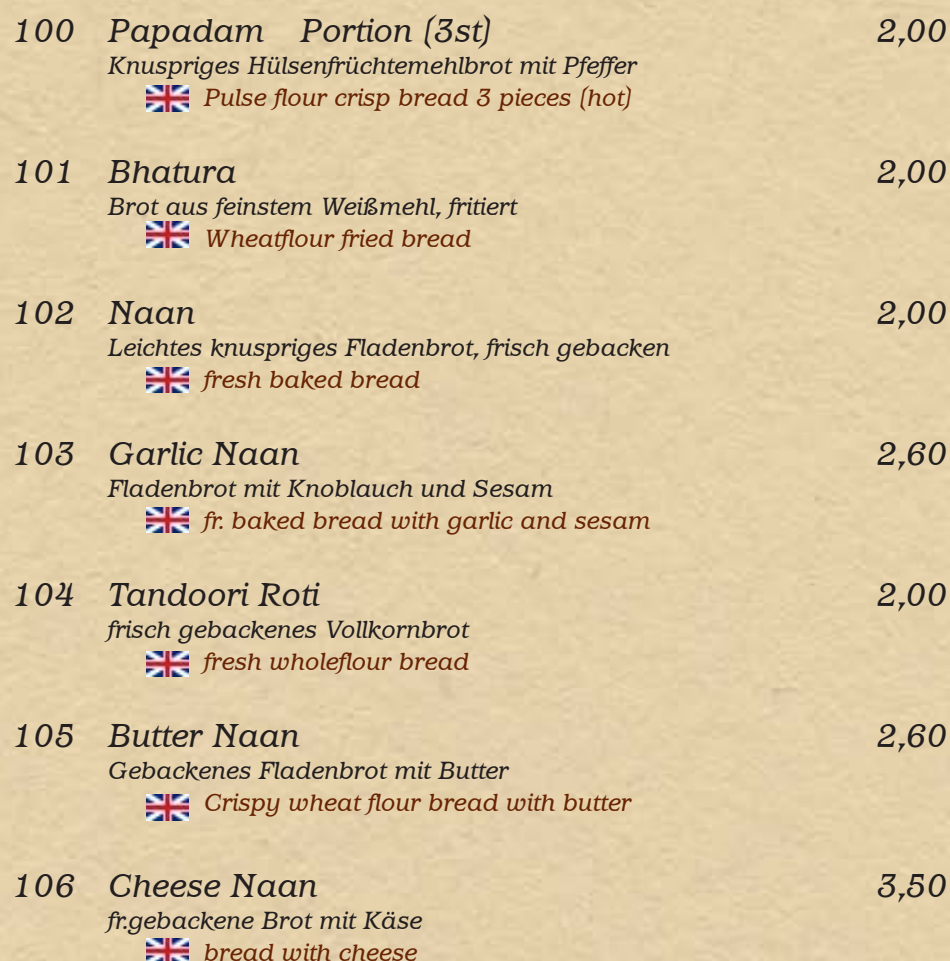 100 Papadam Portion (3st) 2,00
Knuspriges Hülsenfrüchtemehlbrot mit Pfeffer
Pulse flour crisp bread 3 pieces (hot)
101 Bhatura 2,00
Brot aus feinstem Weißmehl, fritiert
Wheatflour fried bread
102 Naan 2,00
Leichtes knuspriges Fladenbrot, frisch gebacken
fresh baked bread
103 Garlic Naan 2,60
Fladenbrot mit Knoblauch und Sesam
fr. baked bread with garlic and sesam
104 Tandoori Roti 2,00
frisch gebackenes Vollkornbrot
fresh wholeflour bread
105 Butter Naan 2,60
Gebackenes Fladenbrot mit Butter
Crispy wheat flour bread with butter
106 Cheese Naan 3,50
fr.gebackene Brot mit Käse
bread with cheese